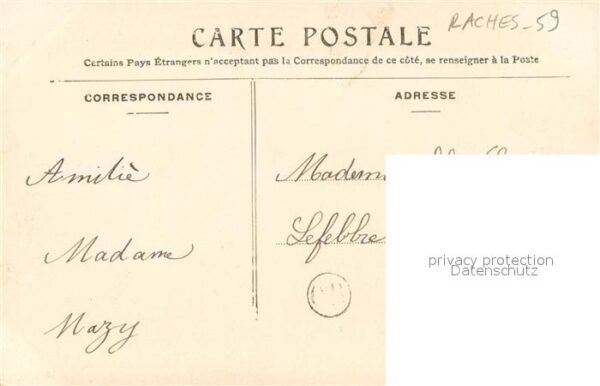 RACHES_59
CARTE POSTALE
Certains Pays Étrangers n'acceptent pas la Correspondance de ce côté, se renseigner à la Poste
CORRESPONDANCE
ADRESSE
Amitié
Madame
Mazy
Lefebbre
privacy protection
Datenschutz